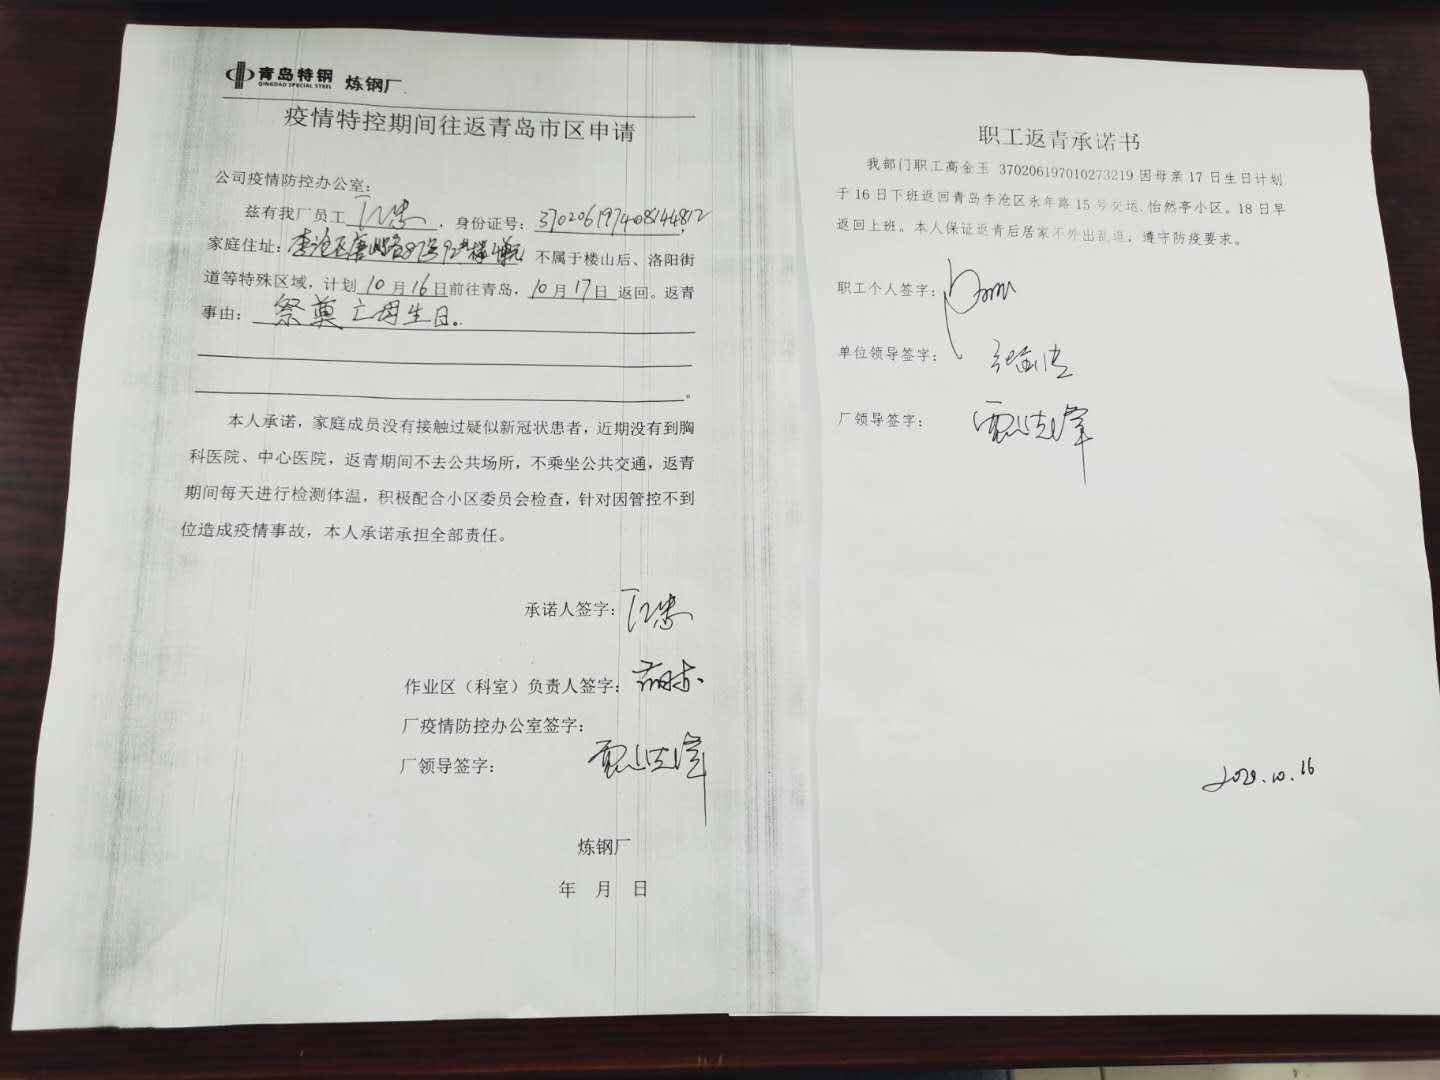 青岛特钢
QINGDAO SPECIAL STEEL
炼钢厂
疫情特控期间往返青岛市区申请
公司疫情防控办公室：
兹有我厂员工，身份证号：370206197408144812
家庭住址：李沧区 不属于楼山后、洛阳街
道等特殊区域，计划10月16日前往青岛，10月17日返回。返青
事由：祭奠亡母生日。
。
本人承诺，家庭成员没有接触过疑似新冠状患者，近期没有到胸
科医院、中心医院，返青期间不去公共场所，不乘坐公共交通，返青
期间每天进行检测体温，积极配合小区委员会检查，针对因管控不到
位造成疫情事故，本人承诺承担全部责任。
承诺人签字：
作业区（科室）负责人签字：
厂疫情防控办公室签字：
厂领导签字：
炼钢厂
年 月 日
职工返青承诺书
我部门职工高金玉 370206197010273219因母亲17日生日计划
于16日下班返回青岛李沧区永年路15号交运、怡然亭小区。18日早
返回上班。本人保证返青后居家不外出乱逛，遵守防疫要求。
职工个人签字：
单位领导签字：
厂领导签字：
10.16